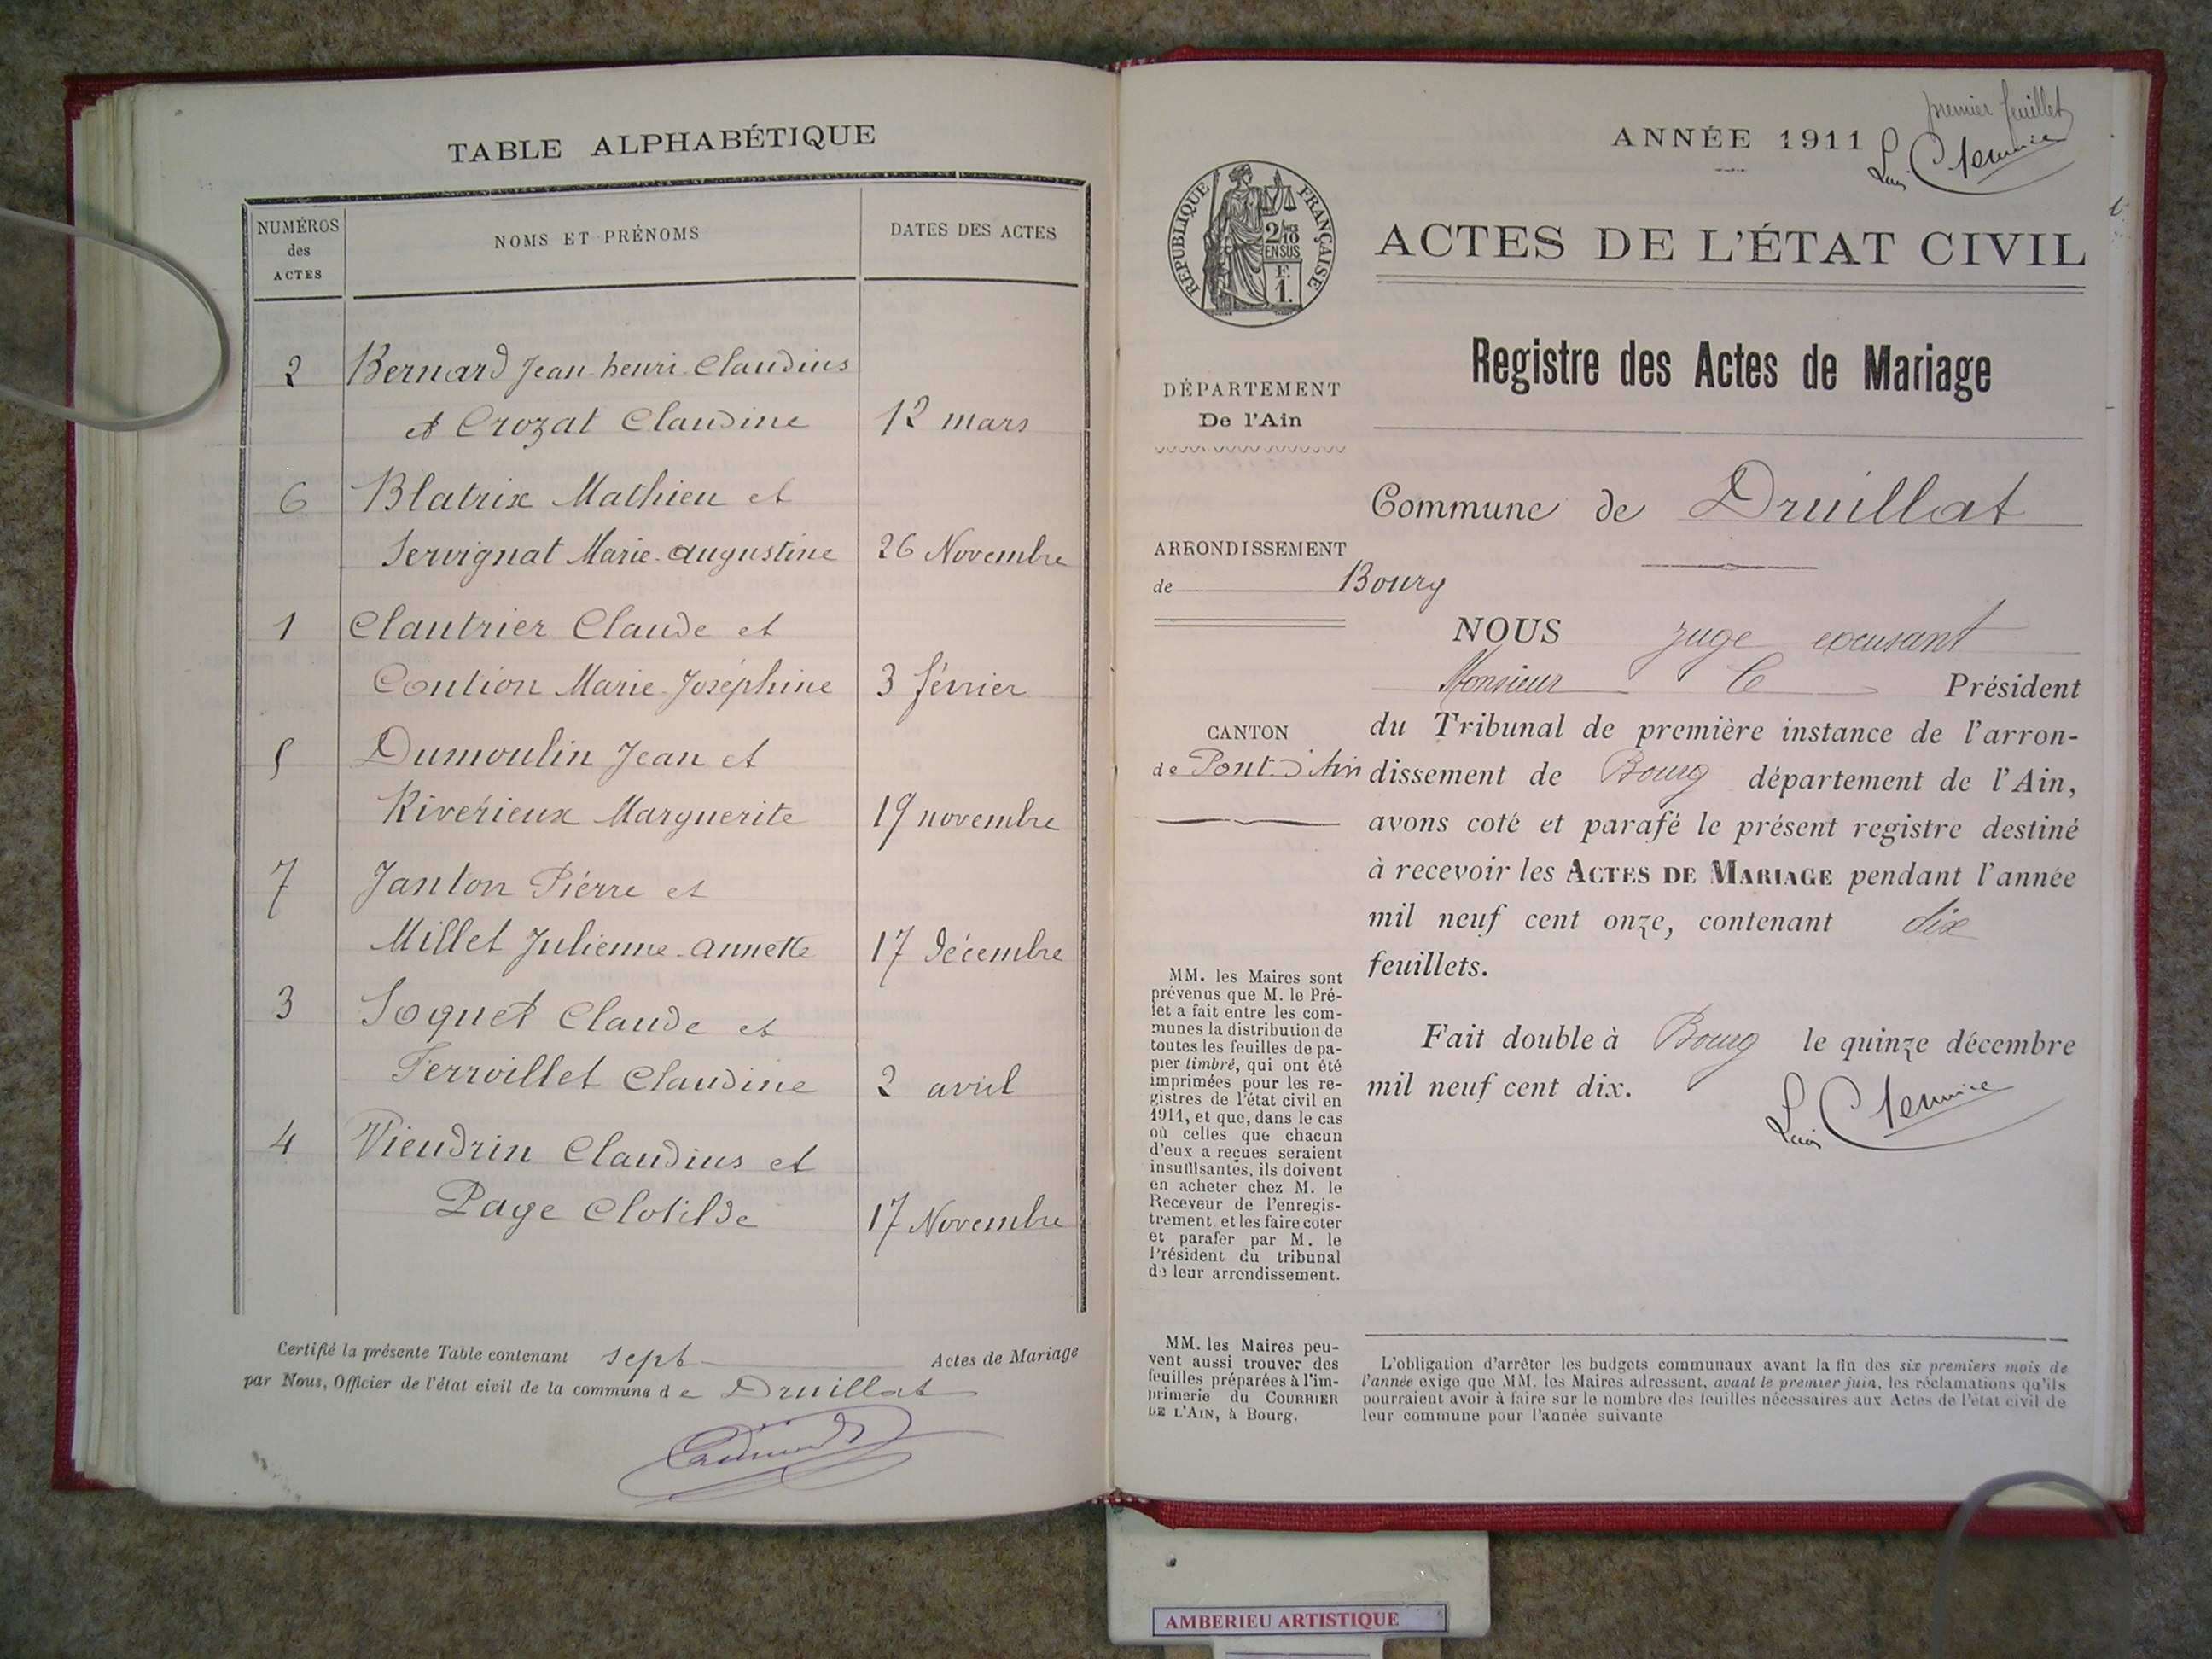 TABLE ALPHABÉTIQUE
NUMÉROS des ACTES
NOMS ET PRÉNOMS
DATES DES ACTES
2 Bernard Jean henri Claudius
et Crozat Claudine 12 mars
6 Blatrix Mathieu et
Servignat Marie-augustine 26 Novembre
1 Clautrier Claude et
Coution Marie-Joséphine 3 février
5 Dumoulin Jean et
Rivérieux Marguerite 19 novembre
7 Janton Piérre et
Millet Julienne-annette 17 décembre
3 Soquet Claude et
Ferroillet Claudine 2 avril
4 Vieudrin Claudius et
Page Clotilde 17 Novembre
Certifié la présente Table contenant sept Actes de Mariage
par Nous, Officier de l'état civil de la commune de Druillat
premier feuillet
ANNÉE 1911
RÉPUBLIQUE FRANÇAISE
2/10
EN SUS
F.
1.
ACTES DE L'ÉTAT CIVIL
Registre des Actes de Mariage
DÉPARTEMENT
De l'Ain
Commune de Druillat
ARRONDISSEMENT
de Bourg
CANTON
de Pont-d'Ain
NOUS juge excusant
Monsieur le Président
du Tribunal de première instance de l'arron-
dissement de Bourg département de l'Ain,
avons coté et parafé le présent registre destiné
à recevoir les ACTES DE MARIAGE pendant l'année
mil neuf cent onze, contenant dix
feuillets.
Fait double à Bourg le quinze décembre
mil neuf cent dix.
MM. les Maires sont
prévenus que M. le Pré-
fet a fait entre les com-
munes la distribution de
toutes les feuilles de pa-
pier timbré, qui ont été
imprimées pour les re-
gistres de l'état civil en
1911, et que, dans le cas
où celles que chacun
d'eux a reçues seraient
insuffisantes, ils doivent
en acheter chez M. le
Receveur de l'enregis-
trement et les faire coter
et parafer par M. le
Président du tribunal
de leur arrondissement.
MM. les Maires peu-
vent aussi trouver des
feuilles préparées à l'im-
primerie du COURRIER
DE L'AIN, à Bourg.
L'obligation d'arrêter les budgets communaux avant la fin des six premiers mois de
l'année exige que MM. les Maires adressent, avant le premier juin, les réclamations qu'ils
pourraient avoir à faire sur le nombre des feuilles nécessaires aux Actes de l'état civil de
leur commune pour l'année suivante
AMBERIEU ARTISTIQUE